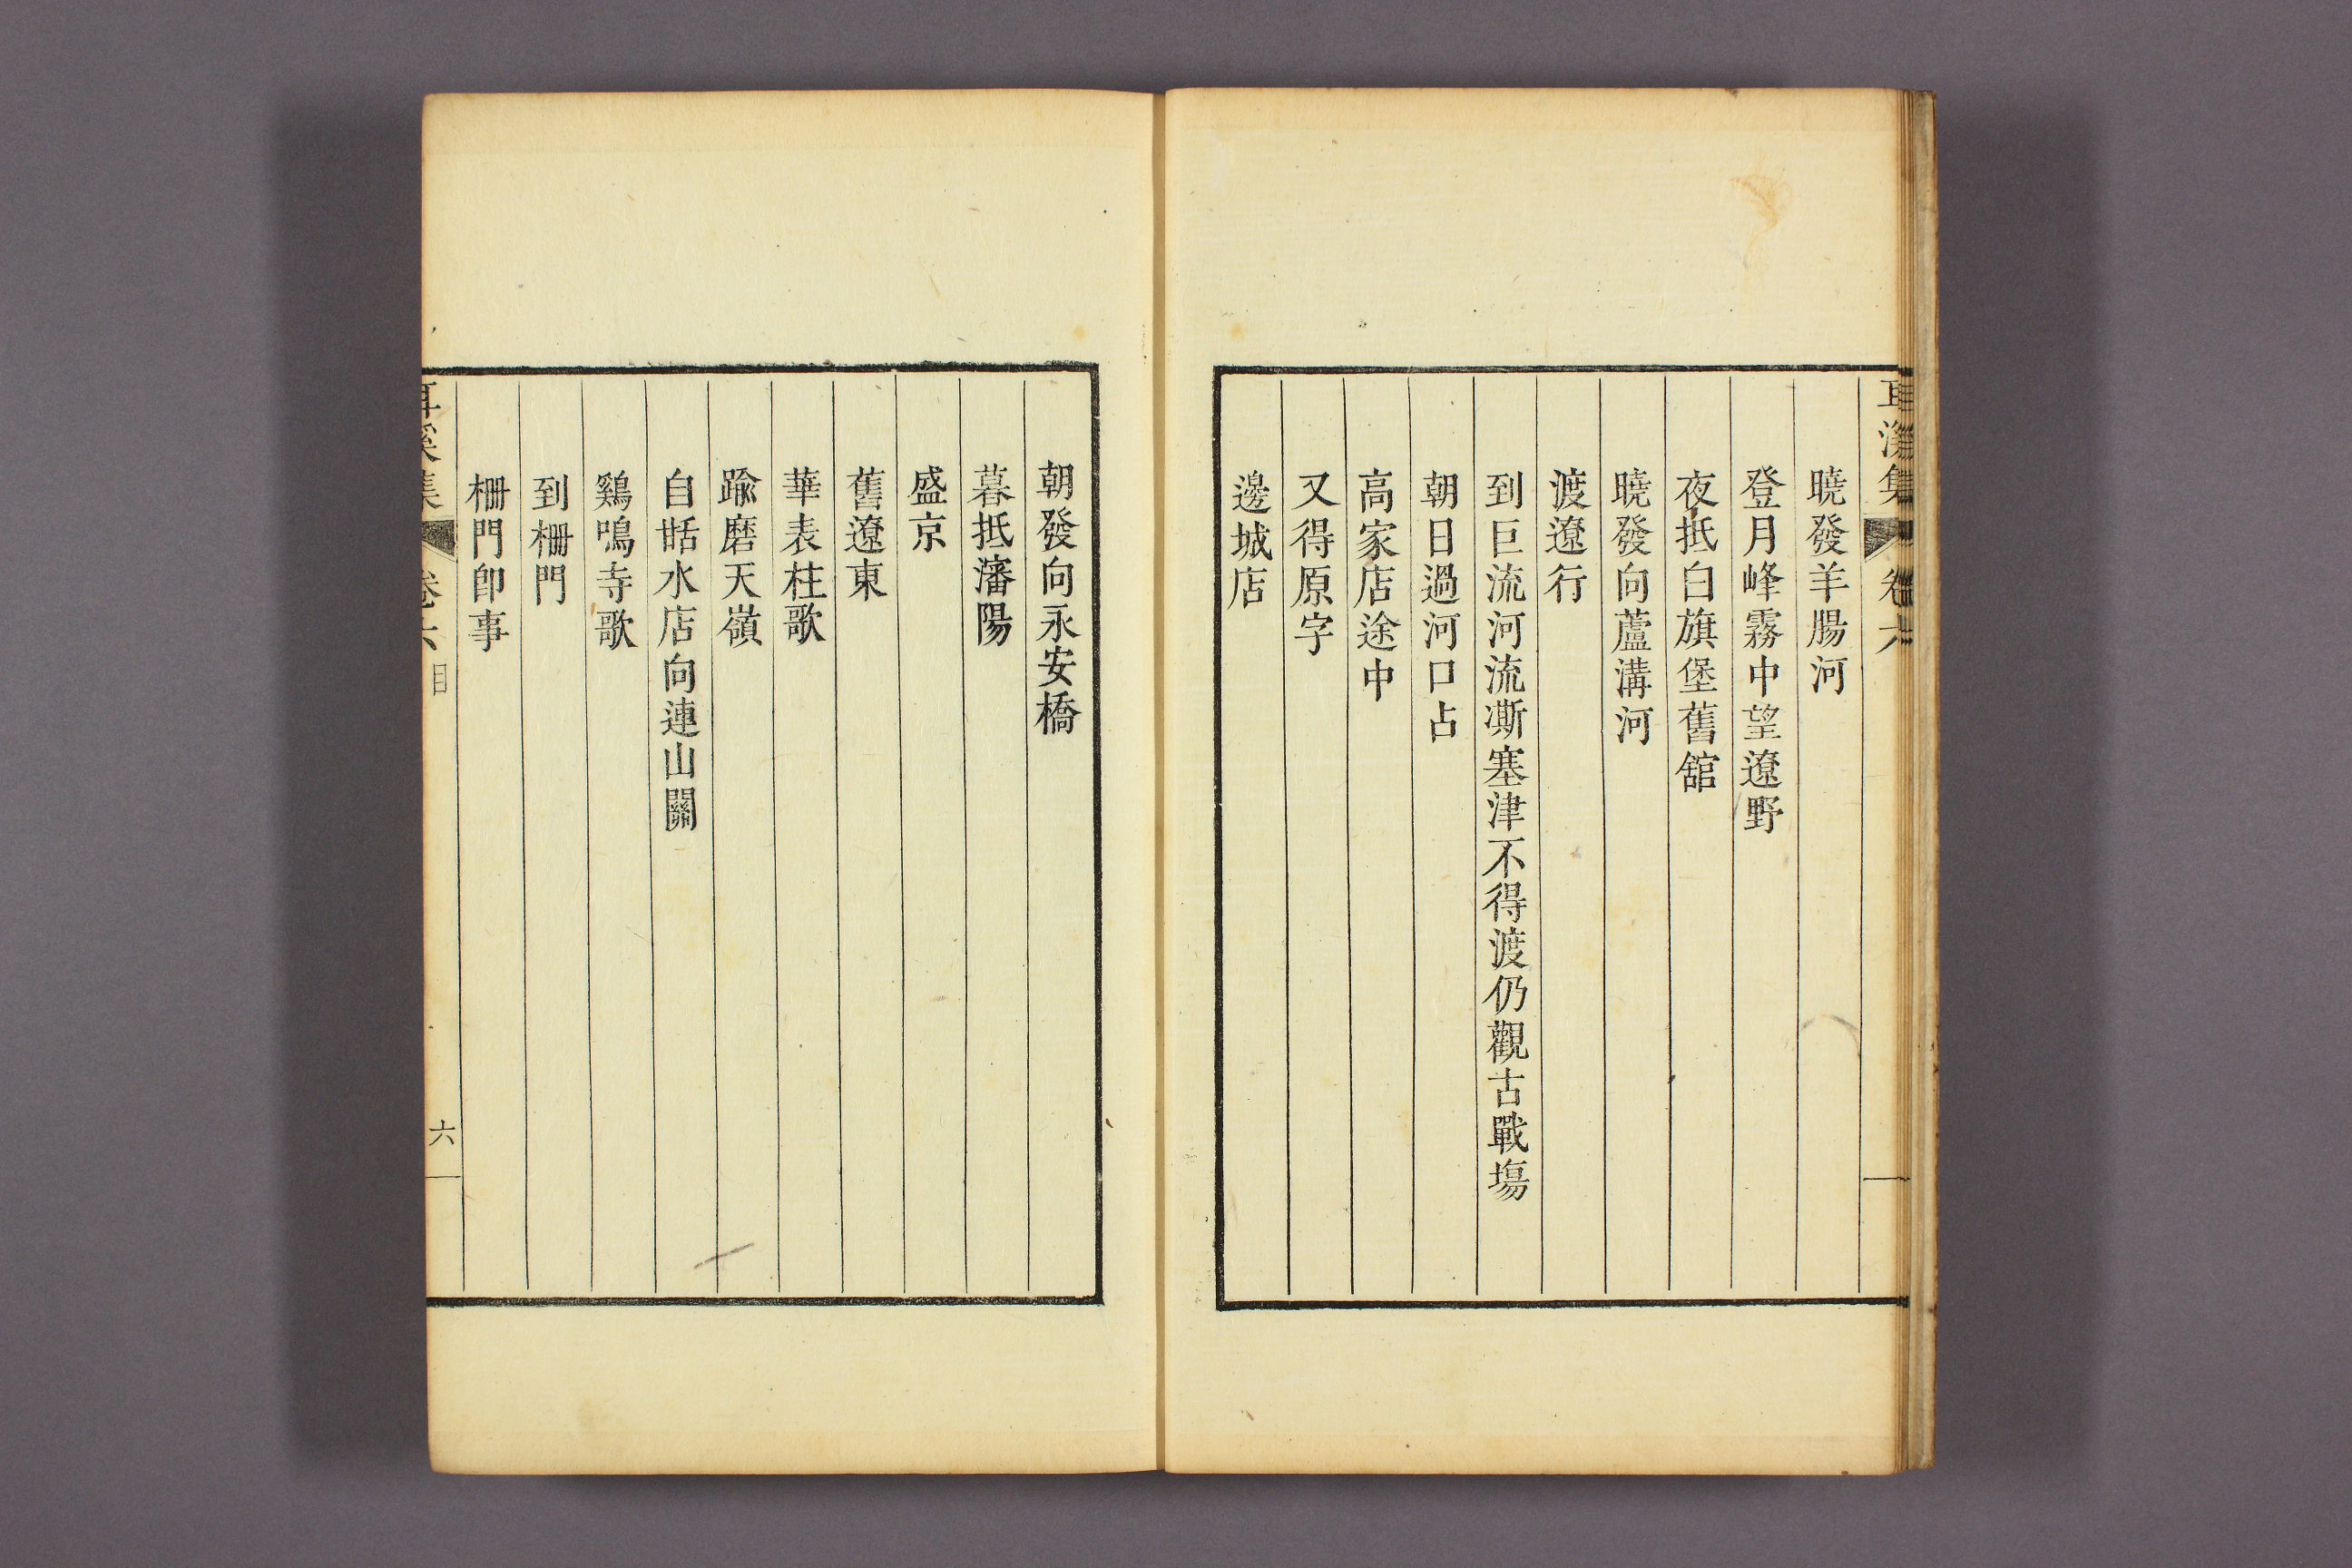 耳溪集 卷六
曉發羊腸河
登月峰霧中望遼野
夜抵白旗堡舊舘
曉發向蘆溝河
渡遼行
到巨流河流凘塞津不得渡仍觀古戰塲
朝日過河口占
高家店途中
又得原字
邊城店
朝發向永安橋
暮抵瀋陽
盛京
舊遼東
華表柱歌
踰磨天嶺
自甜水店向連山關
鷄鳴寺歌
到柵門
柵門卽事
耳溪集 卷六 目 六